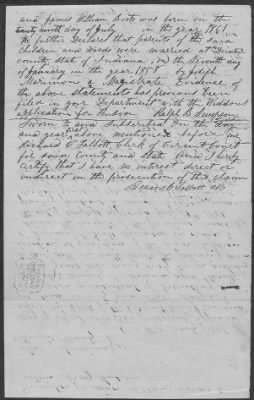 and James William Coats was born on the
twenty ninth day of July in the year 1861
He further Declared that parents of the said
Children and Wards were married at Decatur
County State of Indiana, on the Seventh day
of January in the year 1858 by Joseph
a Magistrate Evidence of
the above statements has previous been
filed in your Department with the Widdows
application for Pension Ralph B. Simpson
Sworn to and Subscribed on the Day
and year above mentioned before me
Richard C Talbott Clerk of Circuit Court
for said County and State And I hereby
Certify that I have no interest direct or
indirect in the prosecution of this claim
Richard C Talbott Clk